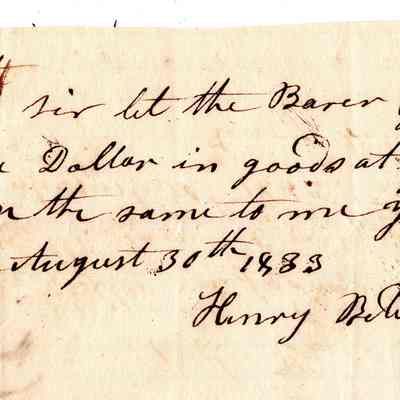 sir let the Barer
Dollar in goods at
the same to me
August 30th 1833
Henry